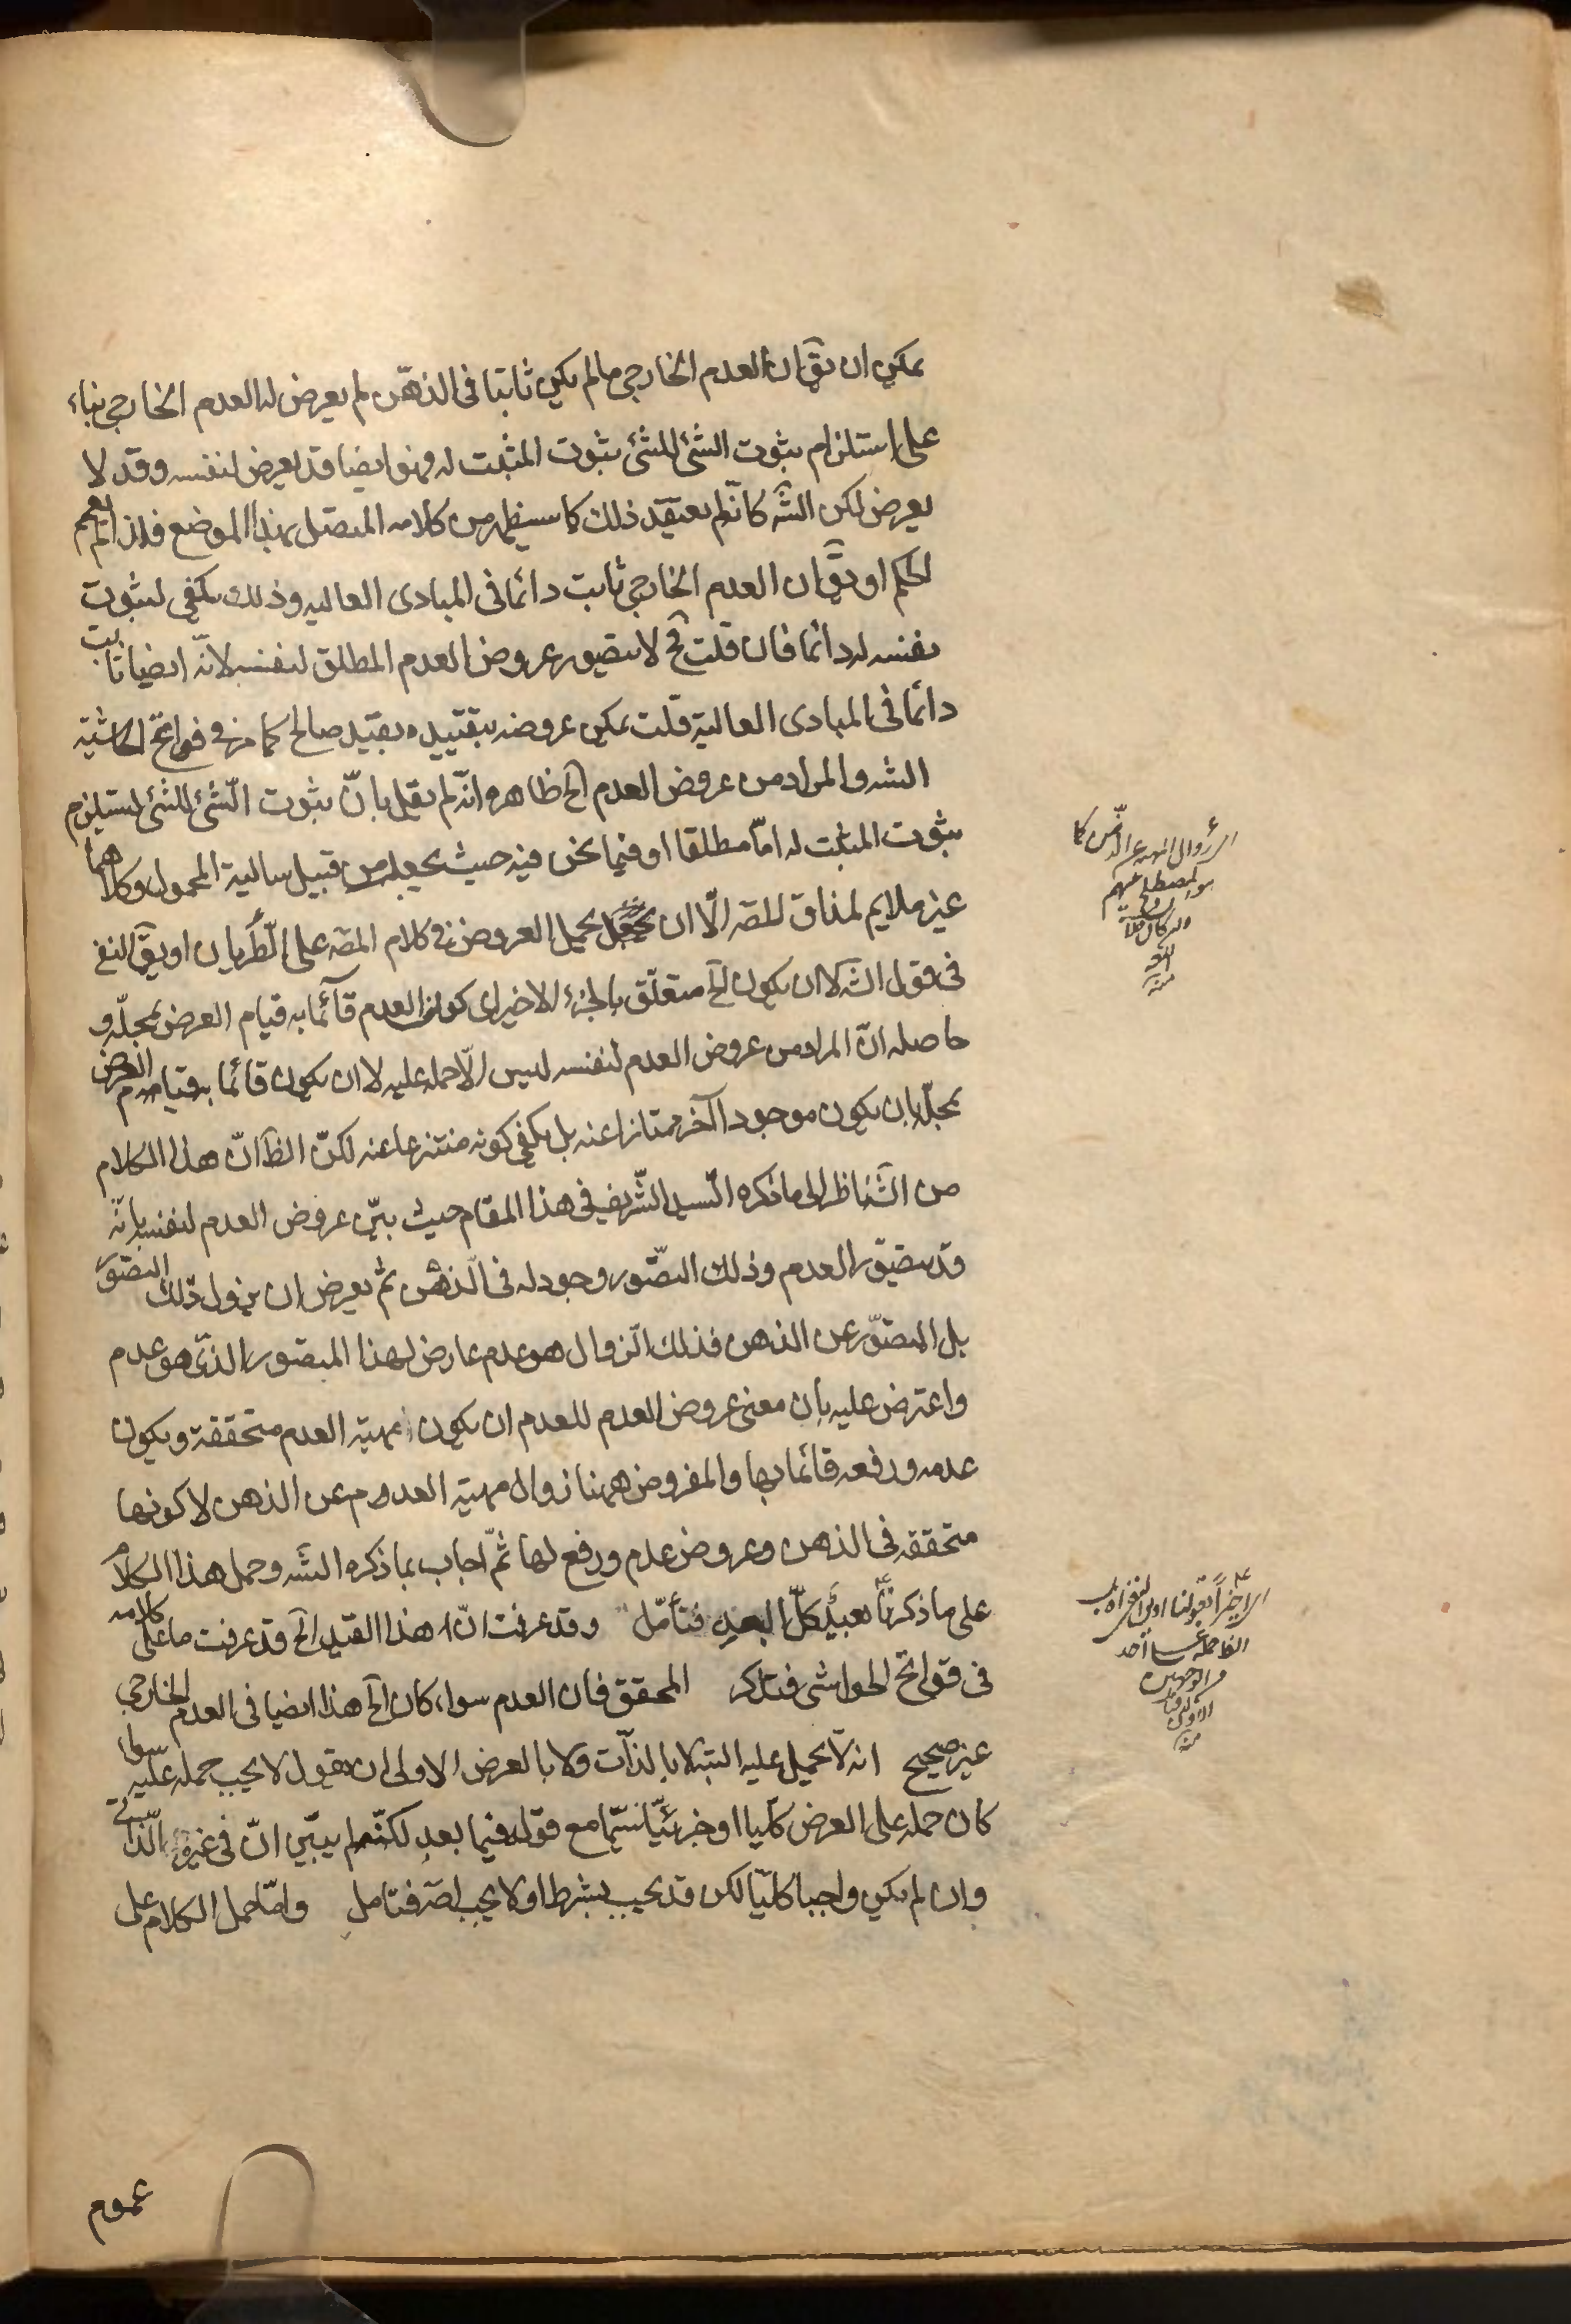 يمكن ان يقٓ ان العدم الخارجى مالم يكن ثابتا فى الذهن لم يعرض له العدم الخارجى بناء
على استلزام ثبوت الشئ للشئ ثبوت المثبت له وهو ايضا قد يعرض لنفسه وقد لا
يعرض لكن الشٓه كانّه لم يعتقد ذلك كما سيظهر من كلامه المتصل بهذا الموضع فلذا لم يعمم
الحكم او يقٓ ان العدم الخارجى ثابت دائما فى المبادى العاليه وذلك يكفى لثبوت
نفسه له دائما فان قلت فحٓ لا يتصور عروض العدم المطلق لنفسه لانّه ايضا ثابت
دائما فى المبادى العالية قلت يمكن عروضه بتقييده بقيد صالح كما مر فى فواتح الحاشية
الشه والمراد من عروض العدم الخ ظاهره انّه لم يقل بانّ ثبوت الشئ للشئ يستلزم
ثبوت المثبت له امّا مطلقا او فيما نحن فيه حيث يجعله من قبيل سالبة المحمول وكلاهما
غير ملايم لمذاق المصه الّا ان يحمل العروض فى كلام المصه على الطَّرَيان او يقٓ النفى
فى قول الشٓه لا ان يكون الخ متعلّق بالجزء الاخير اى كون العدم قآئما به قيام العرض بمحلّه و
حاصله انّ المراد من عروض العدم لنفسه ليس الّا حمله عليه لا ان يكون قائما به قيام العرض
بمحلّه بان يكون موجودا آخر ممتازا عنه بل يكفى كونه منتزعا عنه لكنّ الظٓ انّ هذا الكلام
من الشٓه ناظر الى ما ذكره السيد الشّريف فى هذا المقام حيث بيّن عروض العدم لنفسه بانّه
قد يتصوّر العدم وذلك التصّور وجود له فى الذهن ثم يعرض ان يزول ذلك التصوّر
بل المتصوّر عن الذهن فذلك الزوال هو عدم عارض لهذا المتصور الذى هو عدم
واعترض عليه بان معنى عروض العدم للعدم ان يكون مهيّة العدم متحققة ويكون
عدمه ورفعه قائما بها والمفروض ههنا زوال مهيّة العدم عن الذهن لا كونها
متحققه فى الذهن وعروض عدم ورفع لها ثمّ اجاب بما ذكره الشٓه وحمل هذا الكلام
على ما ذكرنا بعيد كلّ البعد فتأمّل وقد عرفت انّ هذا القيد الخ قد عرفت ما على كلامه
فى فواتح الحواشى فتذكر المحقق فان العدم سواء كان الخ هذا ايضا فى العدم الخارجى
غير صحيح انه لا يحمل عليه البتة لا بالذات ولا بالعرض الاولى ان يقول لا يجب حمله عليه سواء
كان حمله على العرض كلّيا او جزئيّا سيّما مع قوله فيما بعد لكنّه لم يبيّن انّ فى غير الذاتى
وان لم يكن واجبا كليّا لكن قد يجب بشرط او لا يجب اصٓ فتامل وامّا حمل الكلام على
عموم
منه
منه